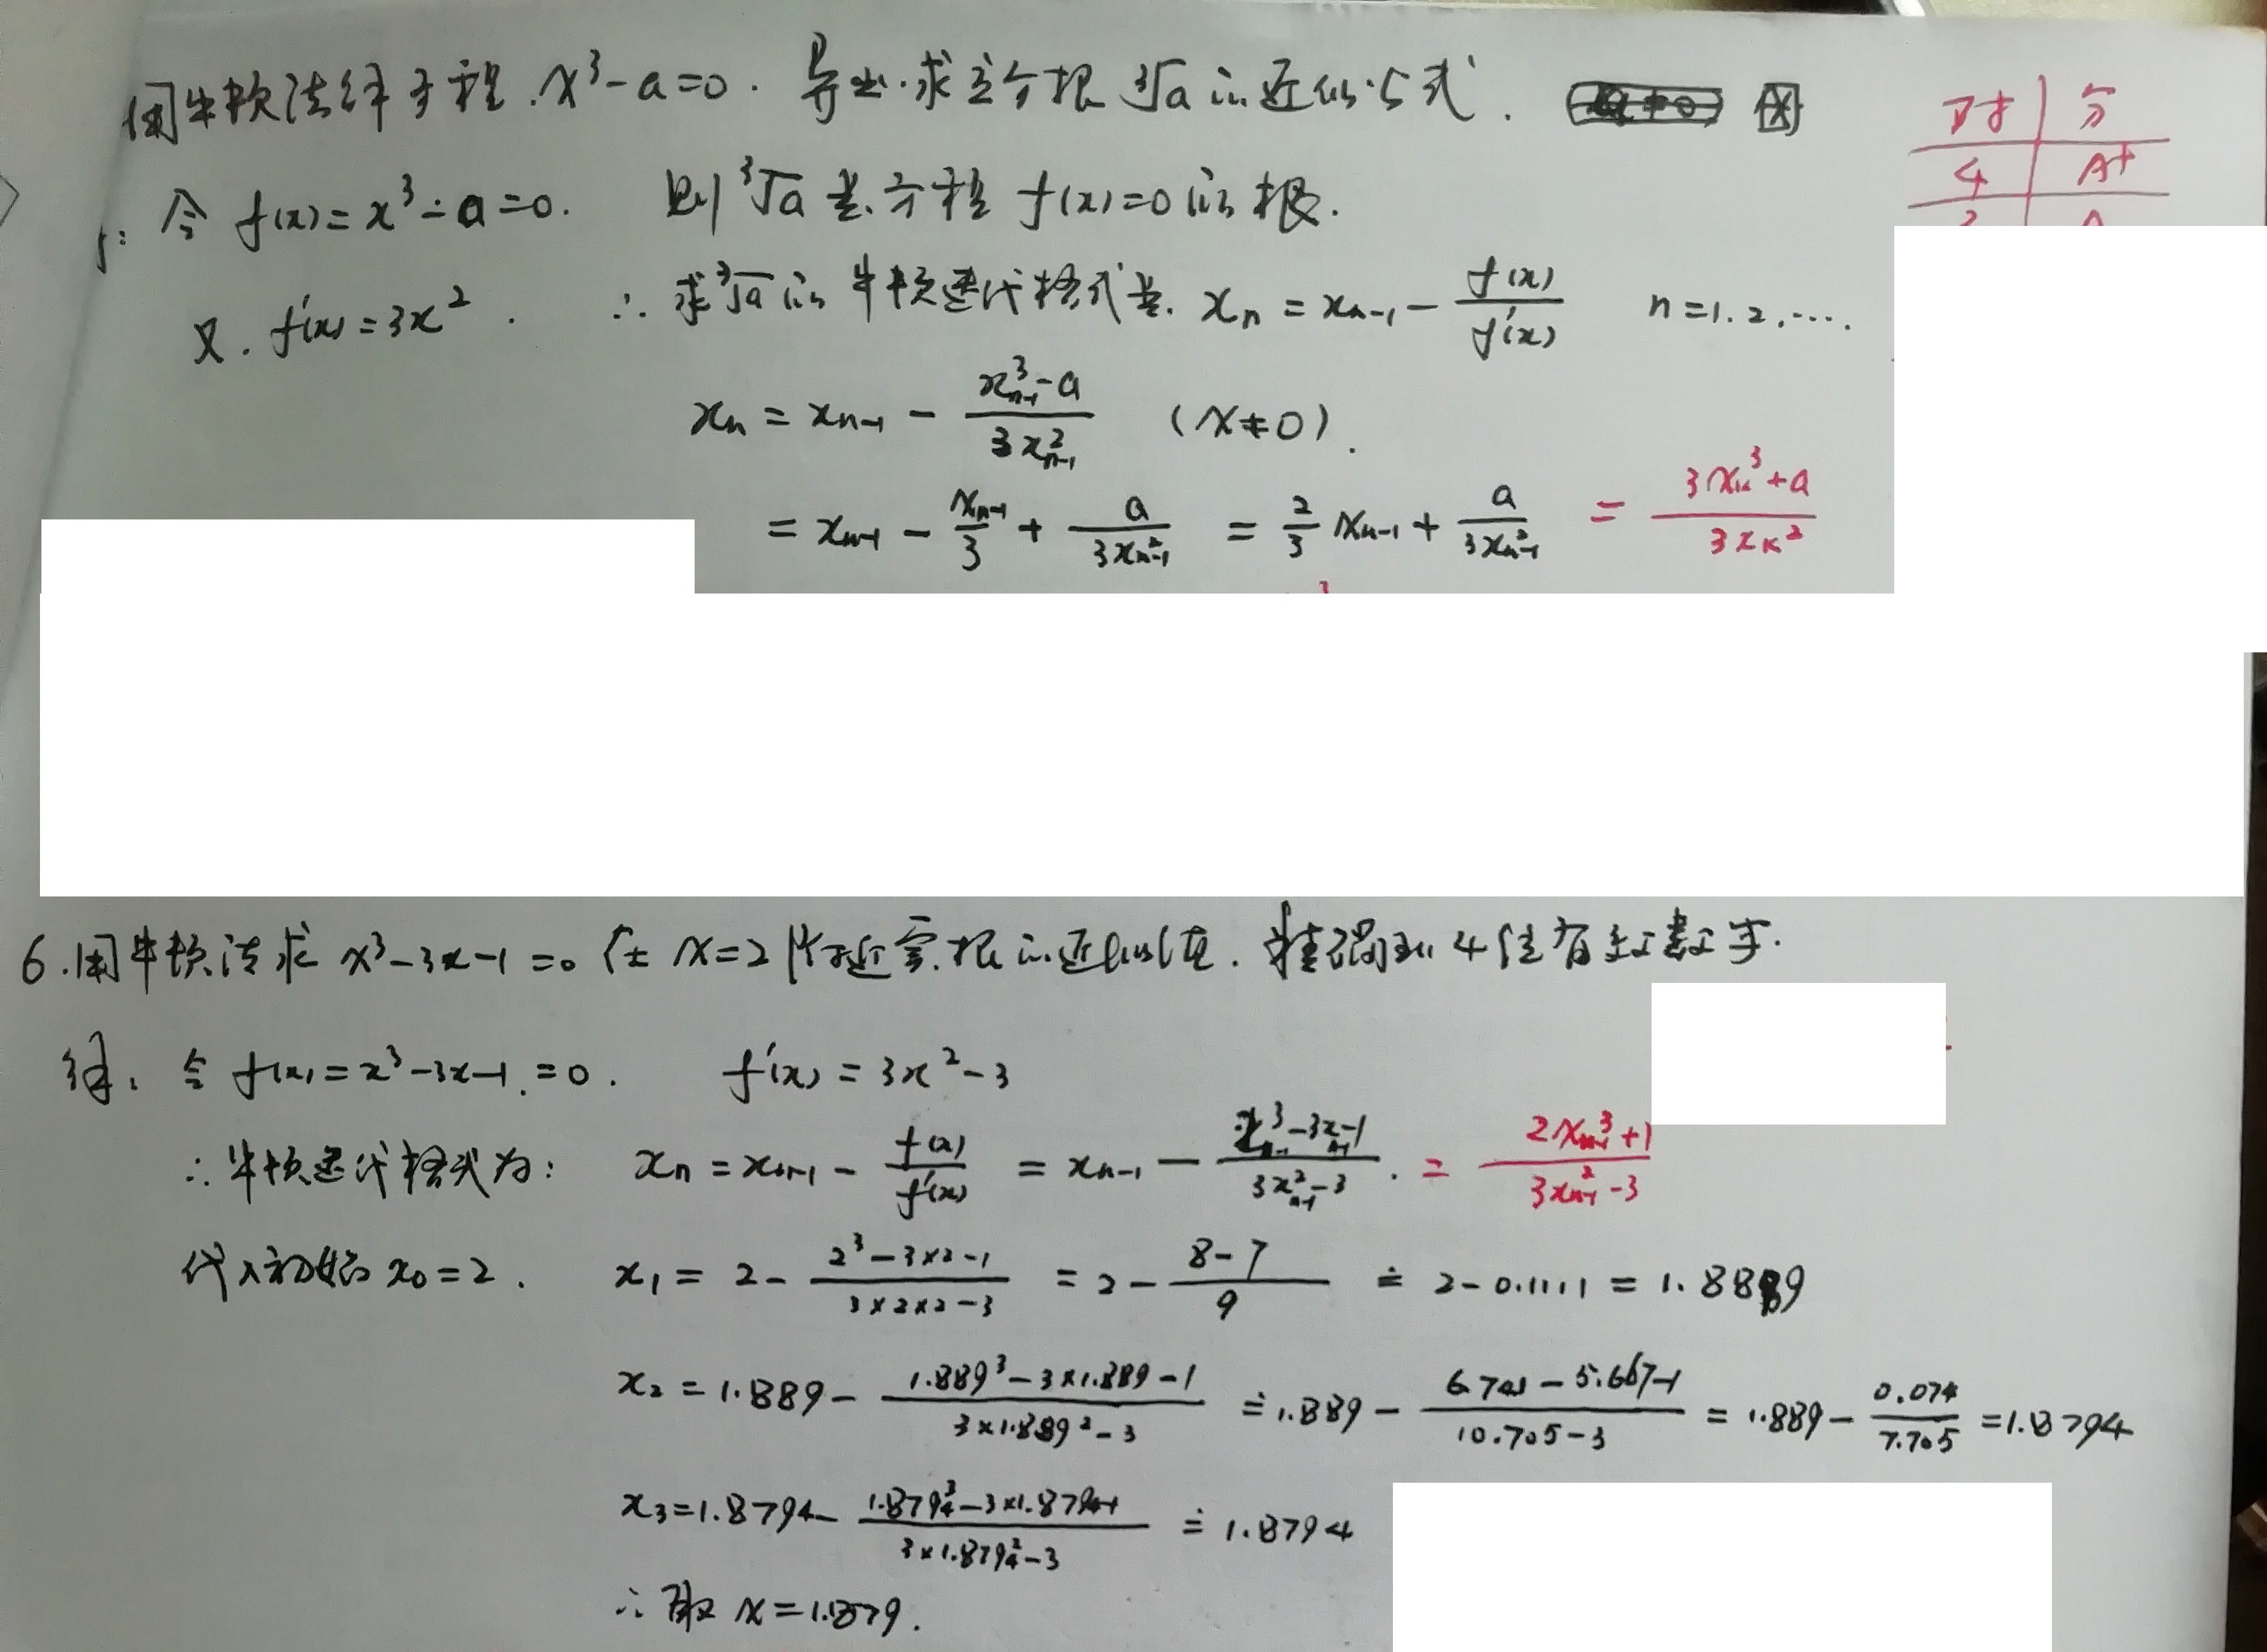 用牛顿法解方程 x³-a=0. 导出求立方根 ³√a 的近似公式.
对 分
4 A+
令 f(x)=x³-a=0. 则 ³√a 是方程 f(x)=0 的根.
又. f'(x)=3x². ∴ 求³√a 的牛顿迭代格式是. xₙ = xₙ₋₁ - f(x)/f'(x) n=1.2.….
xₙ = xₙ₋₁ - (xₙ₋₁³-a)/(3xₙ₋₁²) (x≠0).
= xₙ₋₁ - xₙ₋₁/3 + a/(3xₙ₋₁²) = 2/3 xₙ₋₁ + a/(3xₙ₋₁²) = (3xₖ³+a)/(3xₖ²)
6.用牛顿法求 x³-3x-1=0 在 x=2 附近实根的近似值. 准确到 4位有效数字.
解: 令 f(x)=x³-3x-1.=0. f'(x)=3x²-3
∴牛顿迭代格式为: xₙ = xₙ₋₁ - f(x)/f'(x) = xₙ₋₁ - (xₙ₋₁³-3xₙ₋₁-1)/(3xₙ₋₁²-3). = (2xₙ₋₁³+1)/(3xₙ₋₁²-3)
代入初始 x₀=2. x₁ = 2 - (2³-3×2-1)/(3×2×2-3) = 2 - (8-7)/9 ≐ 2-0.1111 = 1.8889
x₂ = 1.889 - (1.889³-3×1.889-1)/(3×1.889²-3) ≐ 1.889 - (6.741-5.667-1)/(10.705-3) = 1.889 - 0.074/7.705 = 1.8794
x₃=1.8794 - (1.8794³-3×1.8794-1)/(3×1.8794²-3) ≐ 1.8794
∴ 取 x=1.879.